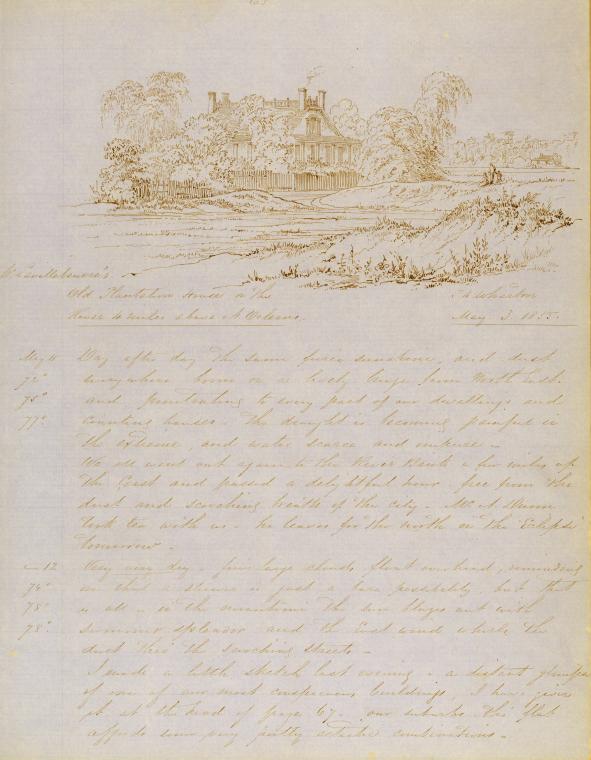 Old Plantation House on the
River 4 miles above N Orleans.
T K Wharton
May 3. 1855.
May 11 Day after day the same fierce sunshine, and dust
72° everywhere borne on a lively from North East
75° and penetrating to every part of our dwellings and
77° counting houses. The drought is becoming painful in
the extreme, and water scarce and impure -
We all went out again to the River Bank a few miles up
the Coast and passed a delightful hour free from the
dust and scorching breath of the city - Mr A
took tea with us - he leaves for the north on the "Eclipse"
tomorrow -
- 12 Very very dry - fine large clouds float overhead, reminding
74° us that a shower is just a bare possibility, but that
78° is all - in the meantime the sun blazes out with
78° summer splendor and the East wind whirls the
dust thro' the scorching streets -
I made a little sketch last evening - a distant glimpse
of one of our most conspicuous buildings, I have given
it at the head of page 67 - our suburbs tho' flat
affords some very pretty artistic combinations -